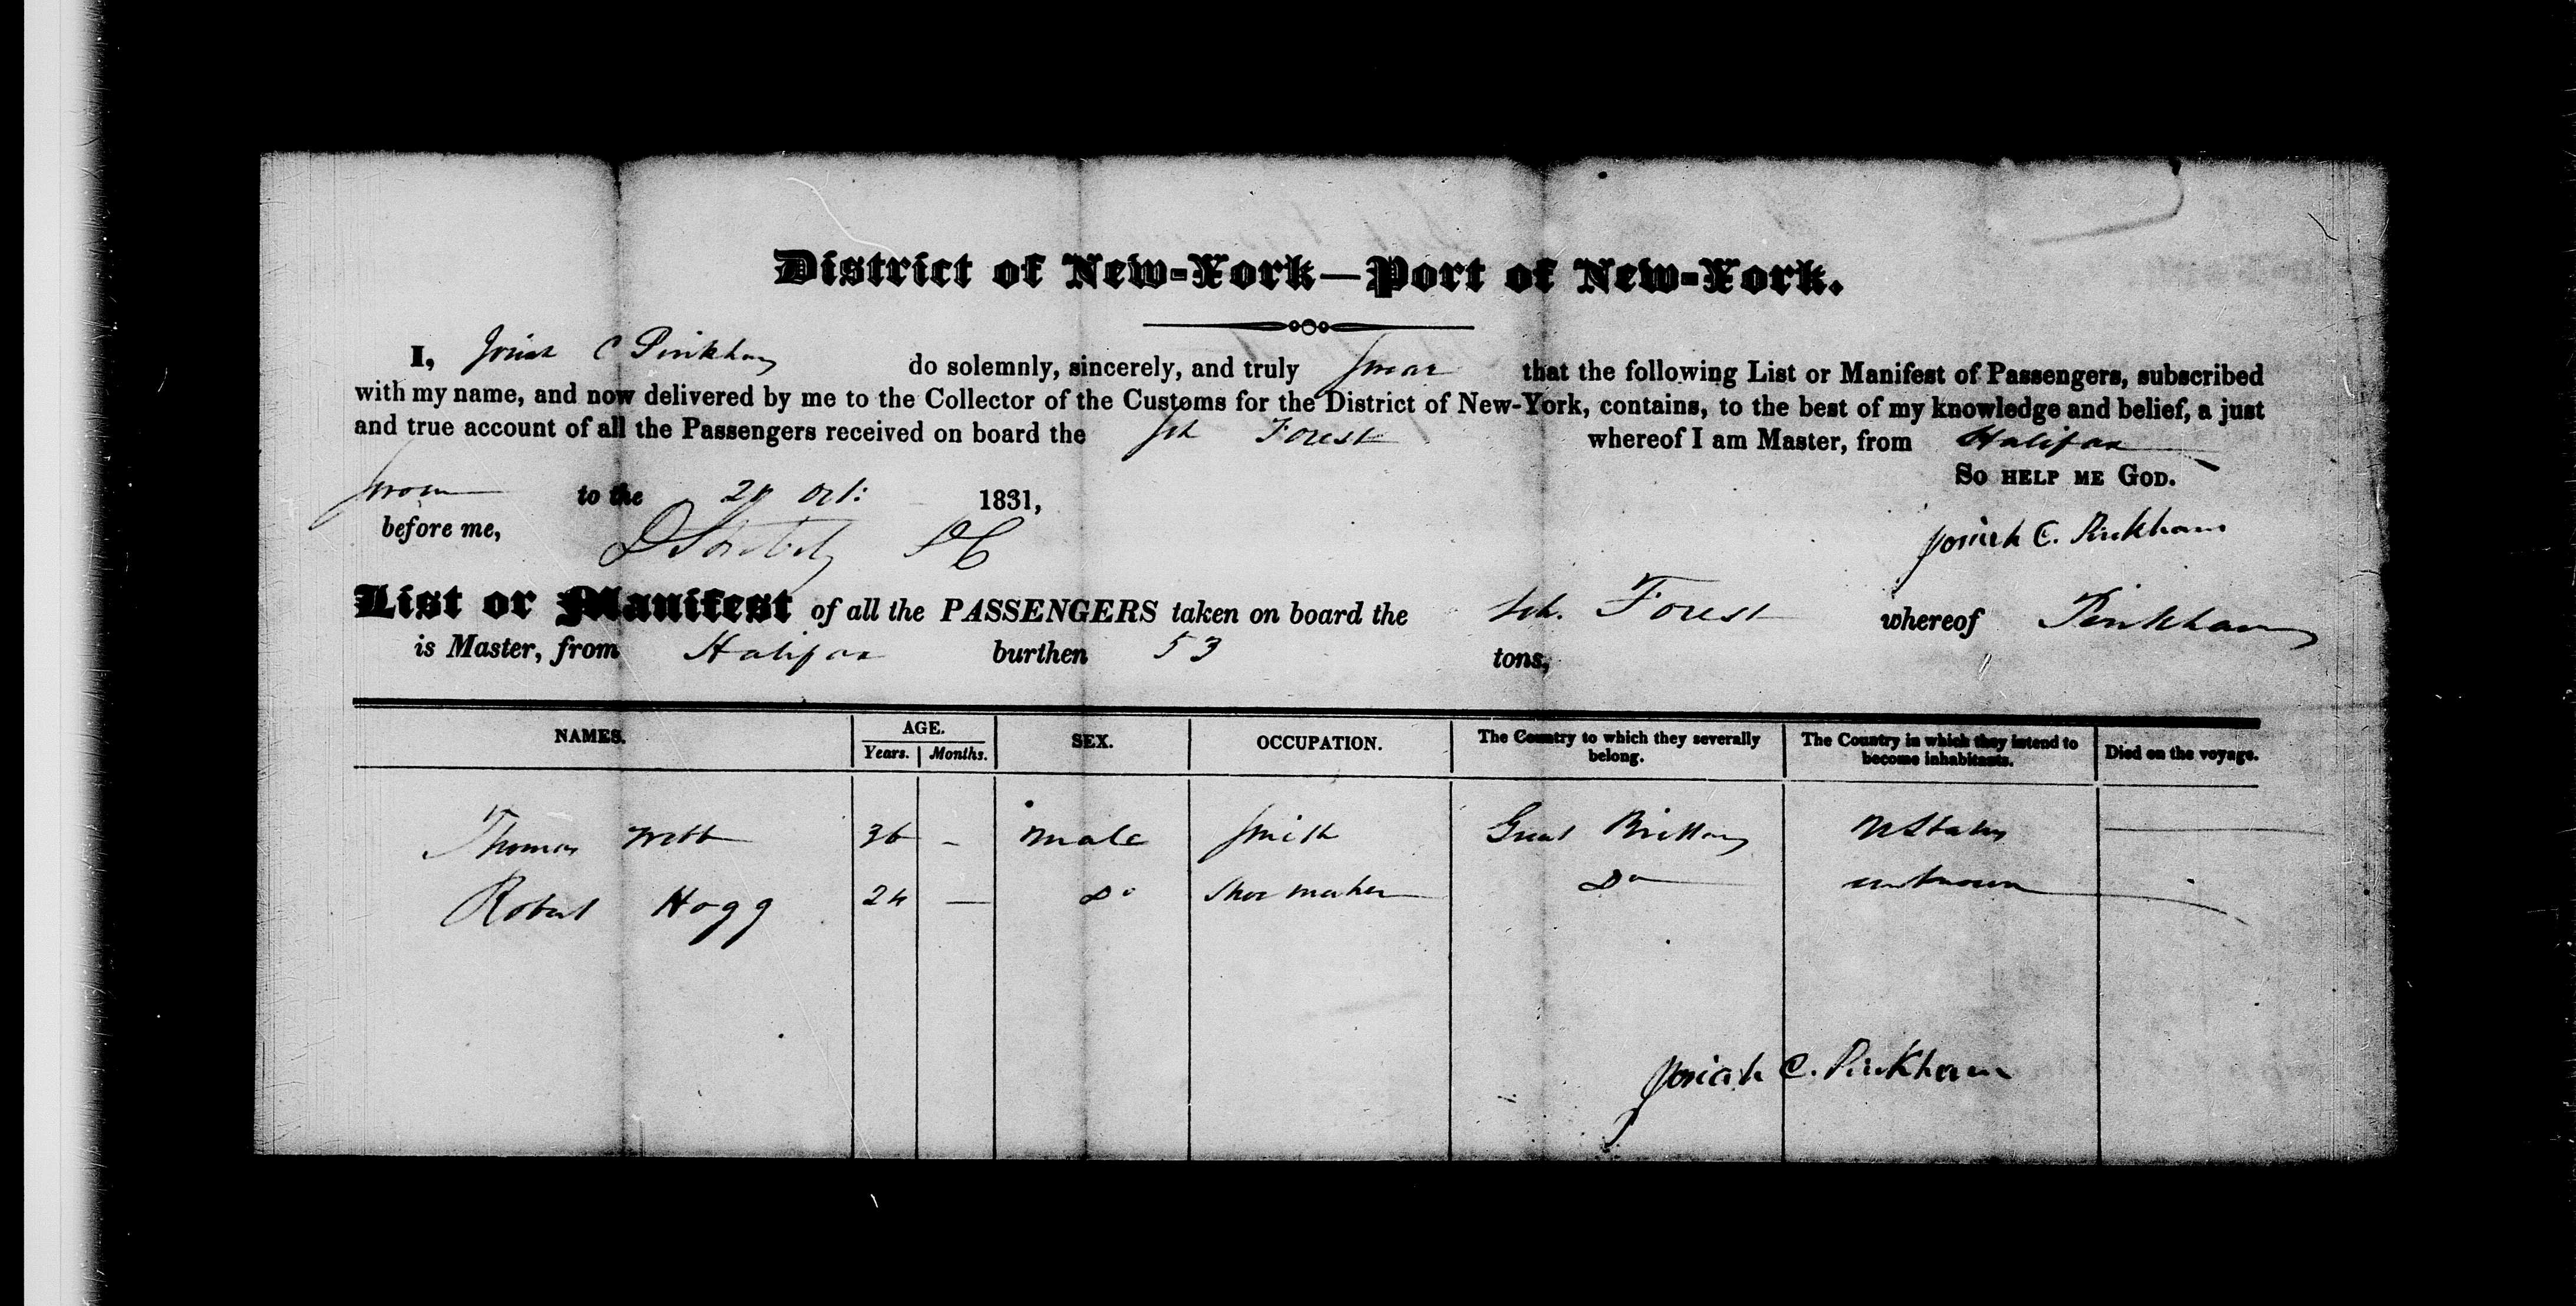 District of New-York—Port of New-York.
I, Josiah C Pinkham do solemnly, sincerely, and truly swear that the following List or Manifest of Passengers, subscribed
with my name, and now delivered by me to the Collector of the Customs for the District of New-York, contains, to the best of my knowledge and belief, a just
and true account of all the Passengers received on board the Sch Forest whereof I am Master, from Halifax
So help me God.
Sworn to the Oct: 1831,
before me, DC
Josiah C. Pinkham
List or Manifest of all the PASSENGERS taken on board the Sch. Forest whereof Pinkham
is Master, from Halifax burthen 53 tons,
NAMES. AGE. Years. Months. SEX. OCCUPATION. The Country to which they severally belong. The Country in which they intend to become inhabitants. Died on the voyage.
Thomas Webb 36 - male Smith Great Brittan U States
Robert Hogg 24 — Do Shoe maker Do unknown
Josiah C. Pinkham